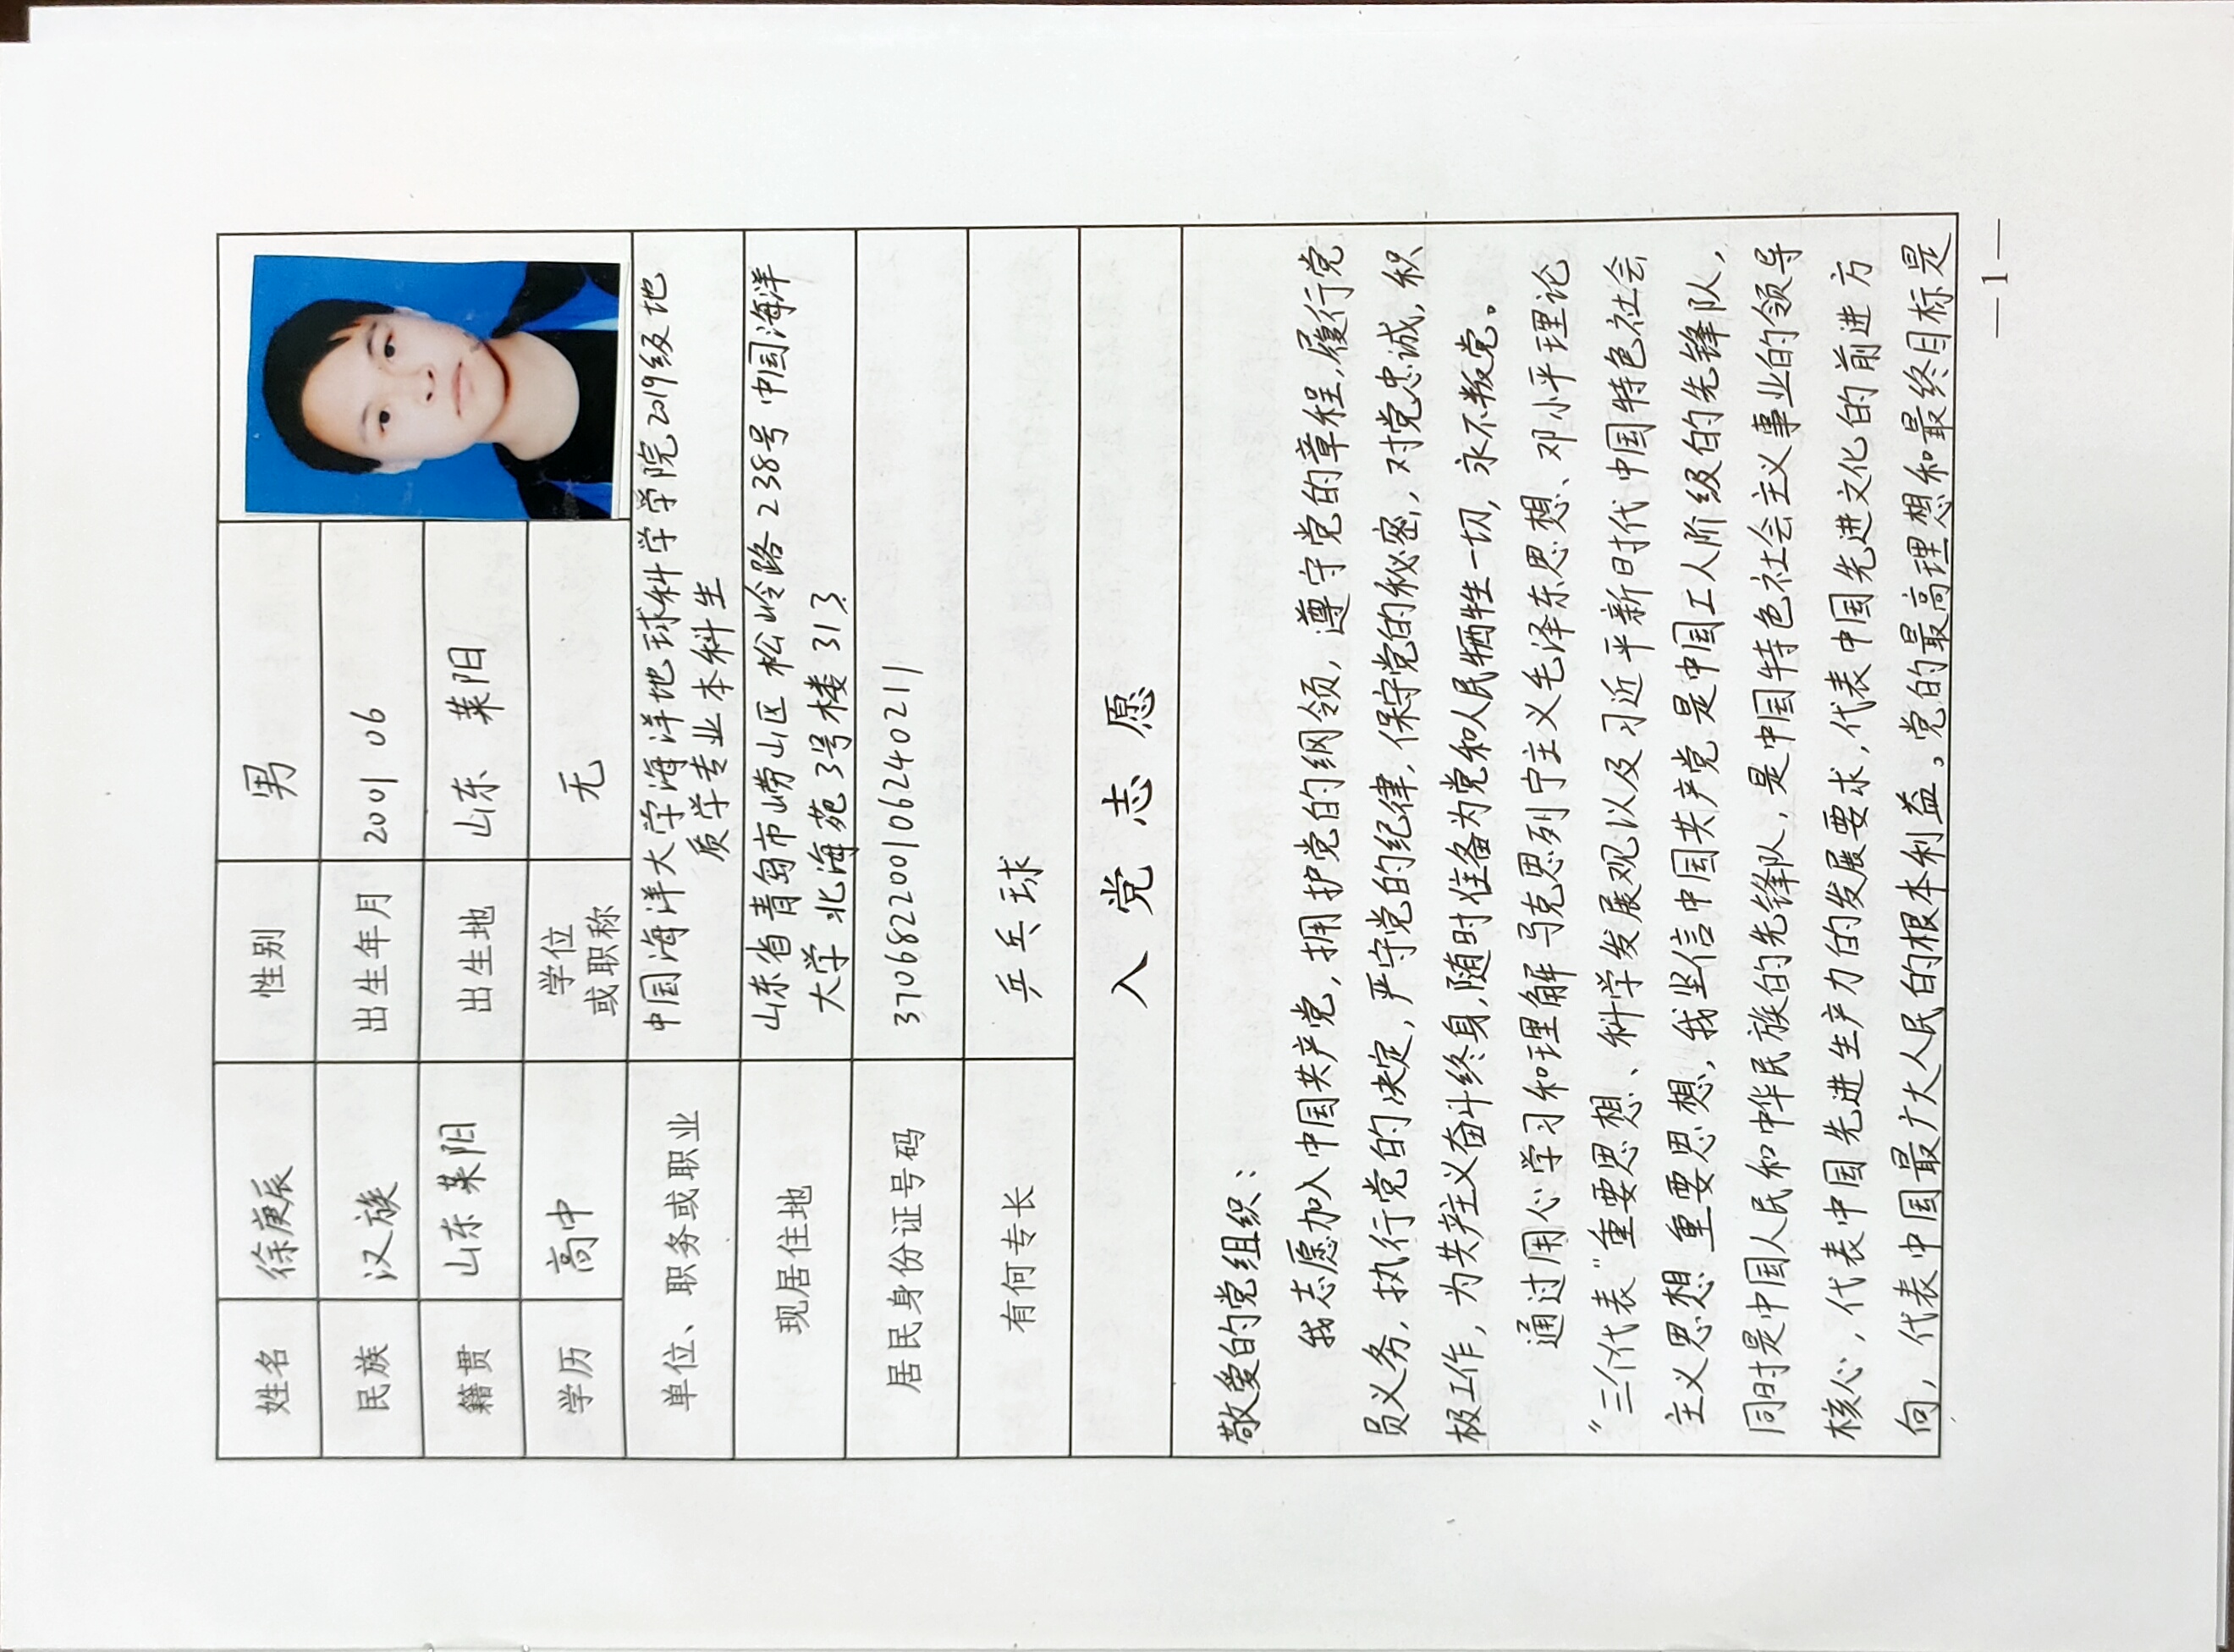 姓名 徐庚辰 性别 男
民族 汉族 出生年月 2001 06
籍贯 山东莱阳 出生地 山东 莱阳
学历 高中 学位或职称 无
单位、职务或职业 中国海洋大学海洋地球科学学院2019级地
质学专业本科生
现居住地 山东省青岛市崂山区松岭路238号中国海洋
大学北海苑3号楼313
居民身份证号码 370682200106240211
有何专长 乒乓球
入党志愿
敬爱的党组织：
我志愿加入中国共产党，拥护党的纲领，遵守党的章程，履行党
员义务，执行党的决定，严守党的纪律，保守党的秘密，对党忠诚，积
极工作，为共产主义奋斗终身，随时准备为党和人民牺牲一切，永不叛党。
通过用心学习和理解马克思列宁主义毛泽东思想、邓小平理论
“三个代表”重要思想、科学发展观以及习近平新时代中国特色社会
主义思想重要思想，我坚信中国共产党是中国工人阶级的先锋队，
同时是中国人民和中华民族的先锋队，是中国特色社会主义事业的领导
核心，代表中国先进生产力的发展要求，代表中国先进文化的前进方
向，代表中国最广大人民的根本利益。党的最高理想和最终目标是
—1—